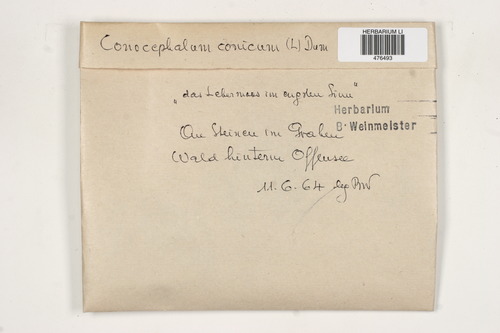 HERBARIUM LI
476493
Conocephalum conicum (L) Dum
„das Lebermoos im engsten Sinn"
Herbarium
B. Weinmeister
An Steinen im Graben
Wald hinterm Offensee
11.6.64 leg BW